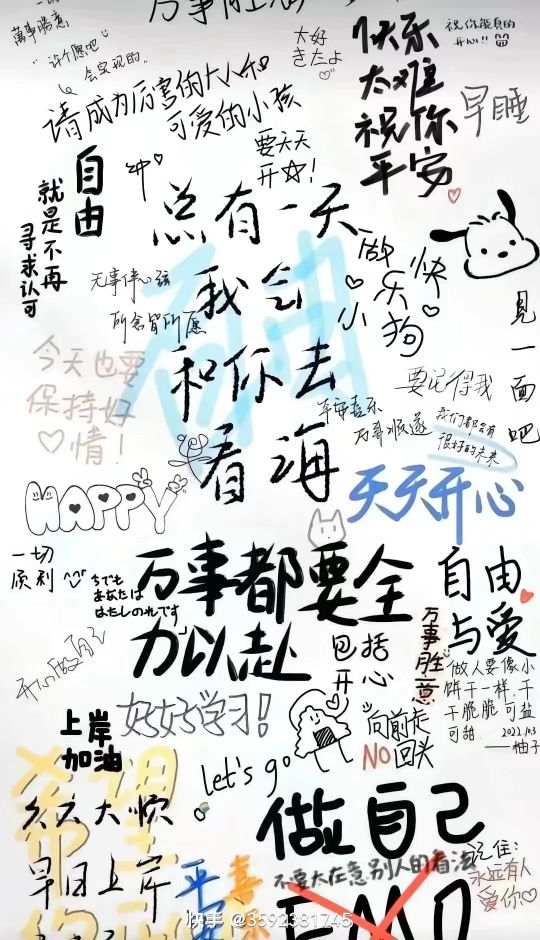 万事胜意
万事顺意
"许个愿吧"
会实现的..
太好
きたよ
快乐
太难
祝你
平安
祝你能真的
开心!!
早睡
请成为厉害的大人和
可爱的小孩
要天天
开☆!
自由
就是不再
寻求认可
总有一天
我会
和你去
看海
做
快
乐
小
狗
无事绊心弦
所念皆所愿
见一面吧
今天也要
保持好
♡情!
要记得我
平安喜乐
万事顺遂
我们都会有
很好的未来
HAPPY
天天开心
一切
顺利
万事都要全
力以赴
包括
开心
自由
与爱
万事胜意
做人要像小
饼干一样,干
干脆脆可盐
可甜.
2022.10.3
——柚子
开心做自己
好好学习!
上岸
加油
向前走
NO回头
let's go
希望
久久大顺
早日上岸
做自己
不要太在意别人的看法
EMO
平安
喜
记住:
永远有人
爱你♡
快手 @3592381745